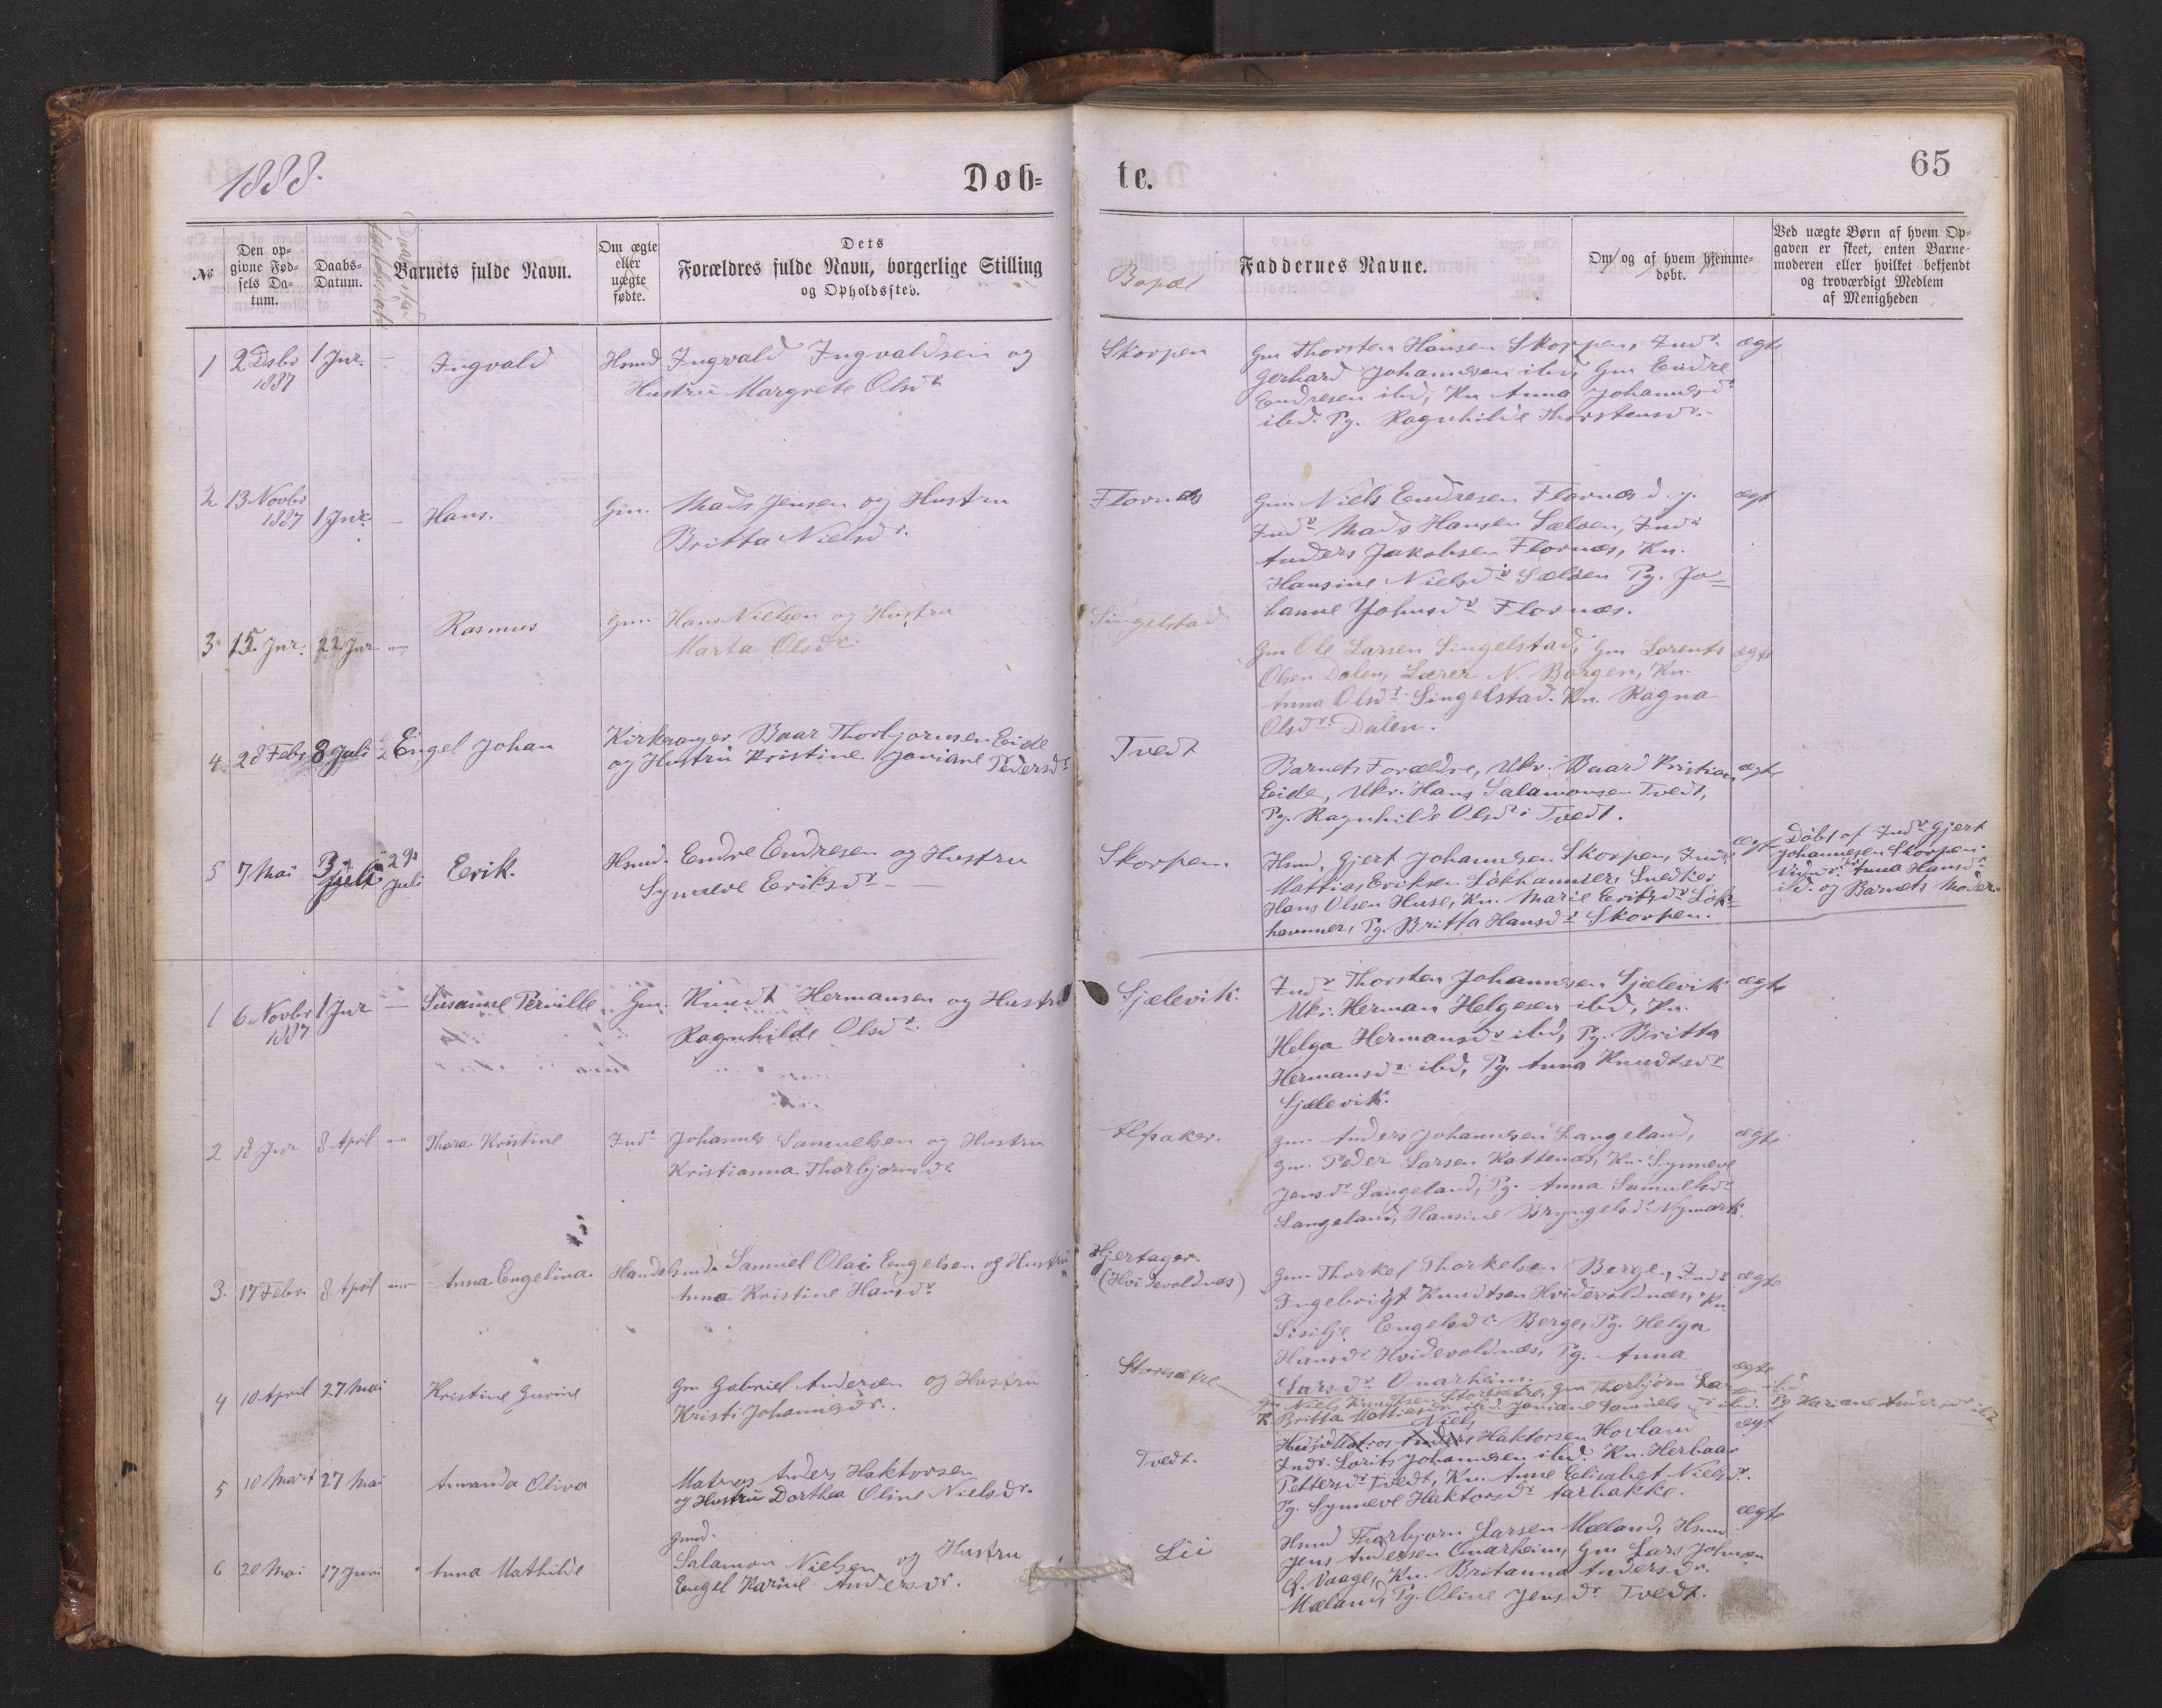 1888.
Døb=
te.
65
№
Den op=
givne Fød=
sels Da=
tum.
Daabs=
Datum.
Barnets fulde Navn.
Om ægte
eller
uægte
fødte.
Dets
Forældres fulde Navn, borgerlige Stilling
og Opholdssted.
Bopæl
Faddernes Navne.
Om og af hvem hjemme=
døbt.
Ved uægte Børn af hvem Op=
gaven er skeet, enten Barne=
moderen eller hvilket bekjendt
og troværdigt Medlem
af Menigheden
1 2 Dsbr 1887 1 Jnr. — Ingvald
Hsmd Ingvald Ingvaldsen og
Hustru Margrete Olsdr
Skorpen
Gm Thorsten Hansen Skorpen, Indr
Gerhard Johannesen ibd Gm Endre
Endresen ibd, Kn Anna Johannesdr
ibd. Pg. Ragnhilde Thorstensdr.
ægte
2 13 Novbr 1887 1 Jnr. — Hans.
Gm. Mads Jensen og Hustru
Britta Nielsdr.
Flornes
Gm Niels Endresen Flornæs d. y.
Indr Mads Hansen Sælden, Indr
Anders Jakobsen Flornæs, Kn.
Hansine Nielsdr Sælden Pg. Jo=
hanne Johnsdr Flornæs.
ægt
3 15 Jnr. 22 Jnr Rasmus
Gm. Hans Nielsen og Hustru
Marta Olsdr.
Singelstad
Gm Ole Larsen Singelstad, Gm Lorents
Olsen Dalen, Lærer N. Borgen, Kn.
Anna Olsdr Singelstad. Kn. Ragna
Olsdr Dalen.
ægte
4 28 Febr 8 Juli Engel Johan
Kirkesanger Baar Thorbjørnsen Eide
og Hustru Kristine Joniane Pedersdr
Tvedt
Barnets Forældre, Ukr. Baard Kristian
Eide, Ukr. Hans Salamonsen Tvedt,
Pg. Ragnhilde Olsdr Tvedt.
ægte
5 7 Mai 3 Juli 29 Juli Erik.
Hsmd. Endre Endresen og Hustru
Synneve Eriksdr
Skorpen
Hsmd, Gjert Johannesen Skorpen, Indr
Mattias Eriksen Løkhammer, Snedker
Hans Olsen Huse, Kn. Marie Eriksdr Løk=
hammer, Pg. Britta Hansdr Skorpen.
ægt
Døbt af Indr Gjert
Johannesen Skorpen.
Vidner: Anna Hansdr
ibd. og Barnets Moder.
1 6 Novbr 1887 1 Jnr — Susanne Pernille
Gm. Knudt Hermansen og Hustru
Ragnhilde Olsdr.
Sjælevik.
Indr Thorsten Johannesen Sjælevik
Ukr. Herman Helgesen ibd, Kn.
Helga Hermansdr ibd, Pg. Britta
Hermansdr ibd, Pg. Anna Knudtsdr
Sjælevik.
ægte
2 18 Jnr 8 April Thora Kristine
Indr Johannes Samuelsen og Hustru
Kristianna Thorbjørnsdr.
Alfsaker.
Gm Anders Johannesen Langeland,
Gm. Peder Larsen Kattenæs, Kn. Synneve
Jensdr Langeland, Pg. Anna Samuelsdr
Langeland, Hansine Bryngelsdr Nymark.
ægte
3. 17 Febr. 8 April Anna Engelina.
Handelsmd. Samuel Olai Engelsen og Hustru
Anna Kristine Hansdr
Hjertager.
(Hvidevoldnæs)
Gm. Thorkel Thorkelsen Berge, Indr
Ingebrigt Knudtsen Hvidevoldnæs, Kn.
Sisilje Engelsdr Berge, Pg. Helga
Hansdr Hvidevoldnæs, Pg. Anna
Larsdr Onarheim.
ægte
4 10 April 27 Mai Kristine Gurine
Gm Gabriel Andersen og Hustru
Kristi Johannesdr.
Storesætre
Gm Niels Knudtsen Storesætre, Gm Thorbjørn Larsen ibd
K. Britta Mattiasdr ibd. Joniane Samuelsdr ibd. Pg Kariane Andersdr ibd
ægte
5 10 Marts 27 Mai Amanda Oliva
Matros Anders Haktorsen
og Hustru Dorthea Oline Nielsdr.
Tvedt.
Niels Haktorsen Hovland
Indr. Lorits Johannesen ibd. Kn. Herbaar
Pettersdr Tvedt, Kn. Anne Elisabet Nielsdr.
Pg. Synneve Haktorsdr Aarbakke.
ægt
6 20 Mai 17 Juni Anna Mathilde
Gmd.
Salamon Nielsen og Hustru
Engel Karine Andersdr.
Lii
Hsmd Thorbjørn Larsen Mæland, Hsmd
Jens Andersen Onarheim, Gm Lars Johnsen
Ø. Vaage, Kn. Britanna Andersdr.
Mæland, Pg. Oline Jensdr Tvedt.
ægte